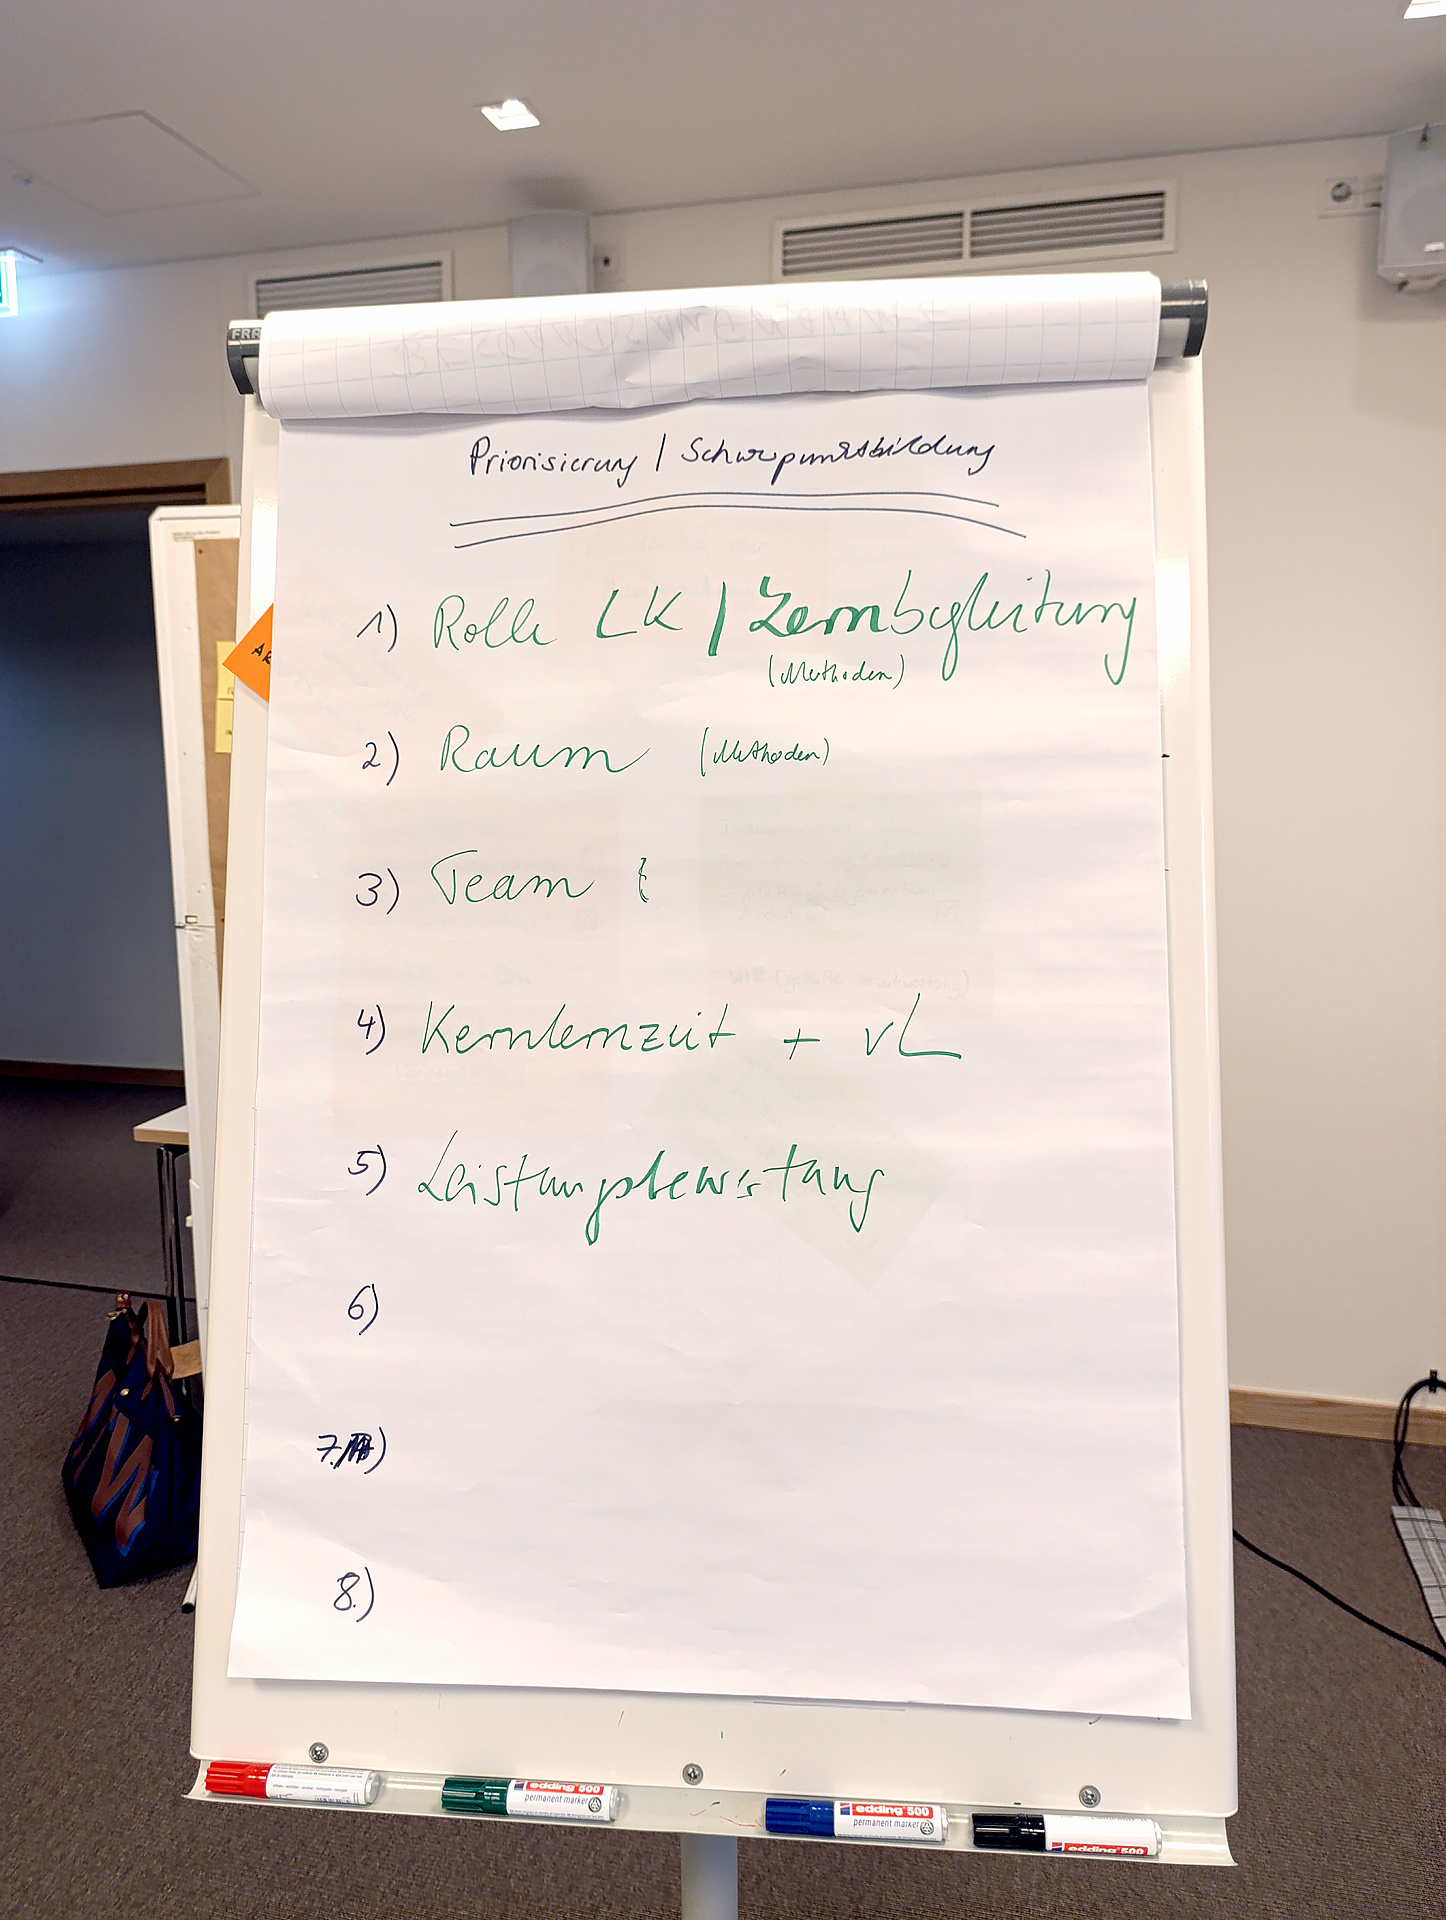 FRA
Priorisierung / Schwerpunktbildung
AR
1) Rolle LK / Lernbegleitung
(Methoden)
2) Raum (Methoden)
3) Team
4) Kernlernzeit + vL
5) Leistungsbewertung
6)
7.)
8.)
edding 500
permanent marker
edding 500
permanent marker
edding 500